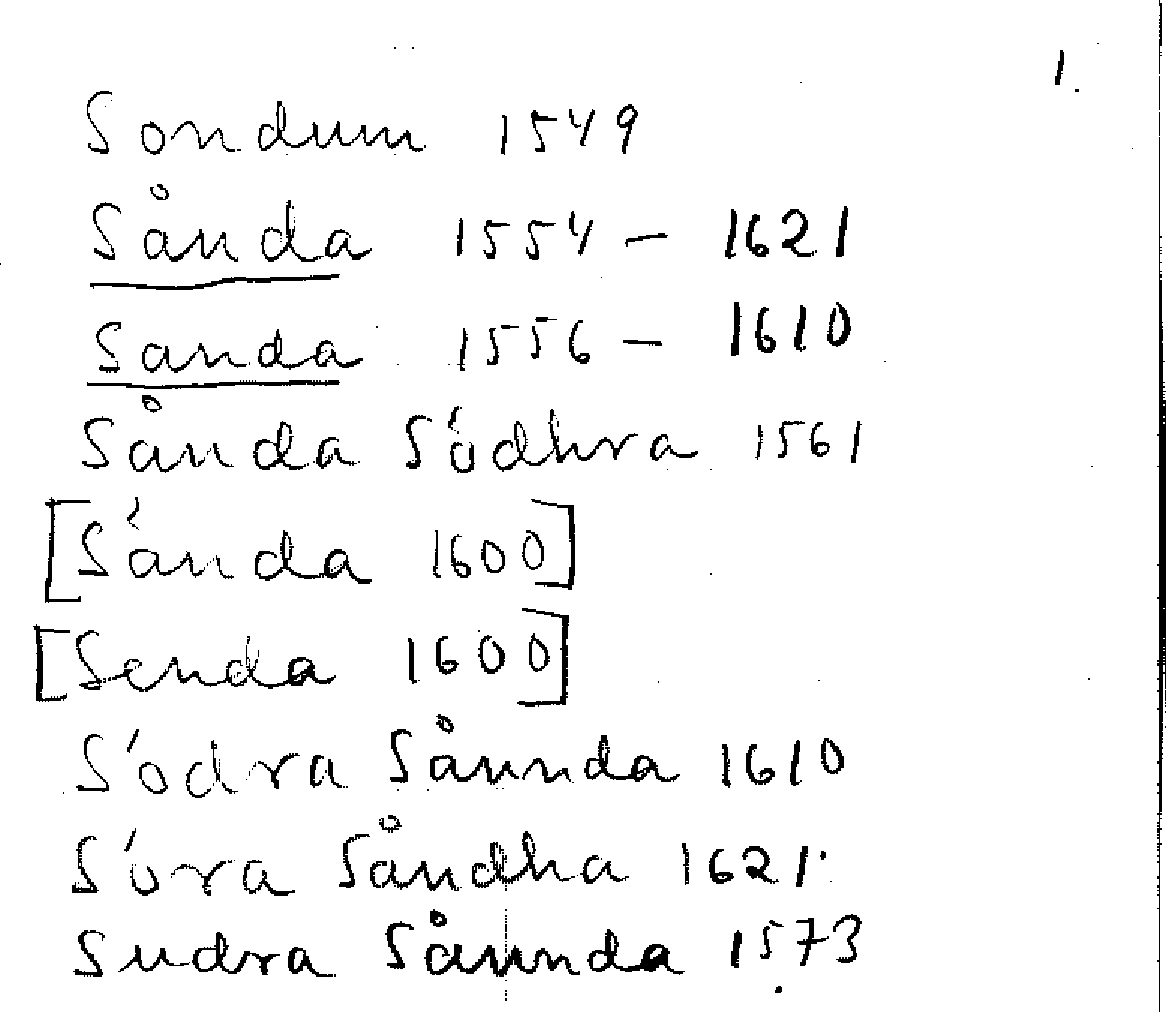 1.
Sondum 1549
Sånda 1554 – 1621
Sanda 1556 – 1610
Sånda Sódhra 1561
[Sánda 1600]
[Senda 1600]
Södra Sånnda 1610
Sóra Såndha 1621
Sudra Sånnda 1573